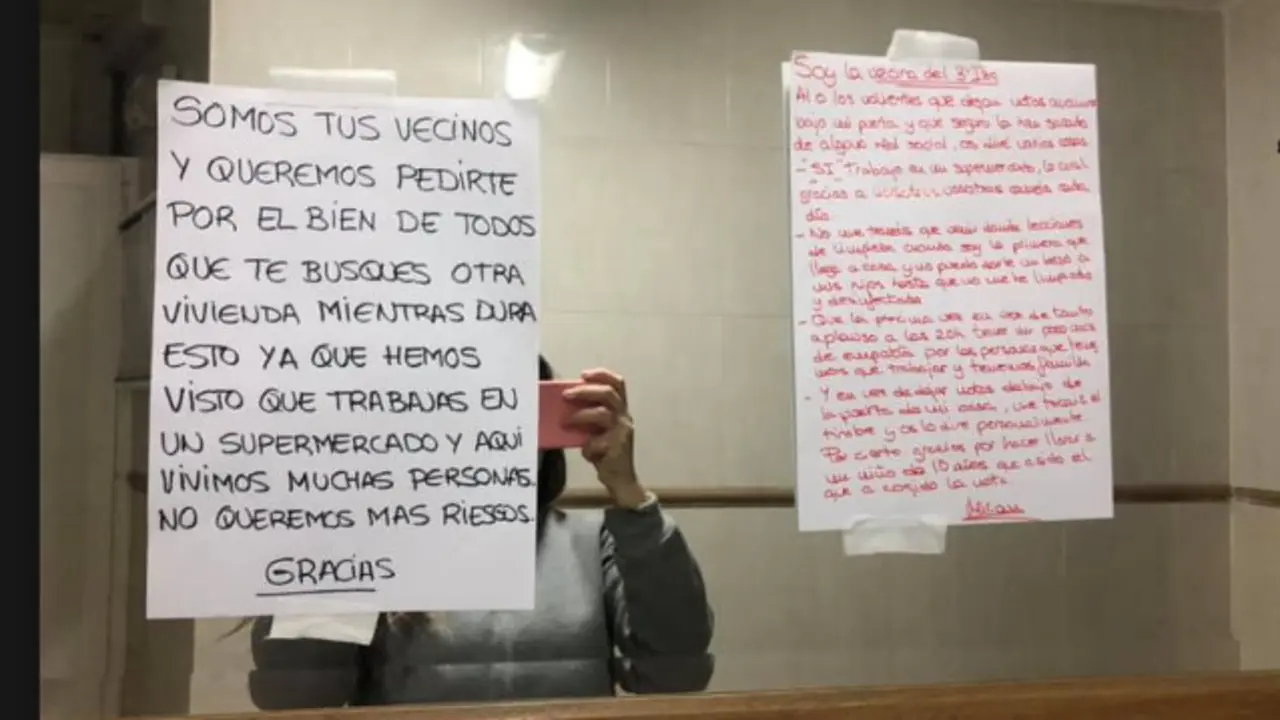 SOMOS TUS VECINOS
Y QUEREMOS PEDIRTE
POR EL BIEN DE TODOS
QUE TE BUSQUES OTRA
VIVIENDA MIENTRAS DURA
ESTO YA QUE HEMOS
VISTO QUE TRABAJAS EN
UN SUPERMERCADO Y AQUI
VIVIMOS MUCHAS PERSONAS.
NO QUEREMOS MAS RIESGOS.
GRACIAS
Soy la vecina del 3º
Al o los valientes que dejan notas
bajo mi puerta y que seguro la han sacado
de alguna red social, os diré varias cosas
- "SI" Trabajo en un supermercado, lo cual
gracias a vosotros cada
día.
- No me tenéis que venir dando lecciones
de limpieza cuando soy la primera que
llega a casa y no puedo darle un beso a
mis hijos hasta que no me he limpiado
y desinfectado
- Que la próxima vez en vez de tanto
aplauso a las 20h tener un poco más
de empatía por las personas que tene
mos que trabajar y tenemos familia
- Y en vez de dejar notas debajo de
la puerta de mi casa, me tocais el
timbre y os lo diré personalmente
Por cierto gracias por hacer llorar a
un niño de 10 años que a sido el
que a cogido la nota.